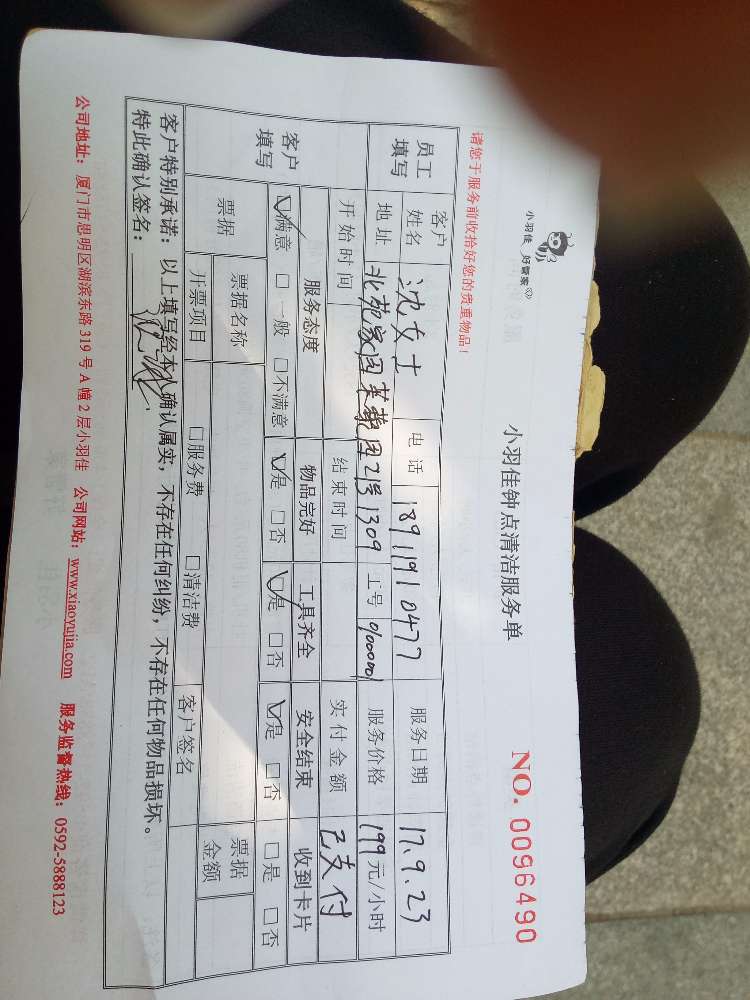 小羽佳 好管家
小羽佳钟点清洁服务单
NO. 0096490
请您于服务前收拾好您的贵重物品！
员工填写
客户姓名 沈女士 电话 18911910477 服务日期 17.9.23
地址 北苑家园茉藜园2号1309 工号 0100001 服务价格 199元/小时
开始时间 结束时间 实付金额 已支付
客户填写
服务态度 物品完好 工具齐全 安全结束 收到卡片
☑满意 □一般 □不满意 ☑是 □否 ☑是 □否 ☑是 □否 □是 □否
票据 票据名称 票据金额
开票项目 □服务费 □清洁费 客户签名
客户特别承诺：以上填写经本人确认属实，不存在任何纠纷，不存在任何物品损坏。
特此确认签名：
公司地址：厦门市思明区湖滨东路319号A幢2层小羽佳 公司网站：www.xiaoyujia.com 服务监督热线：0592-5888123